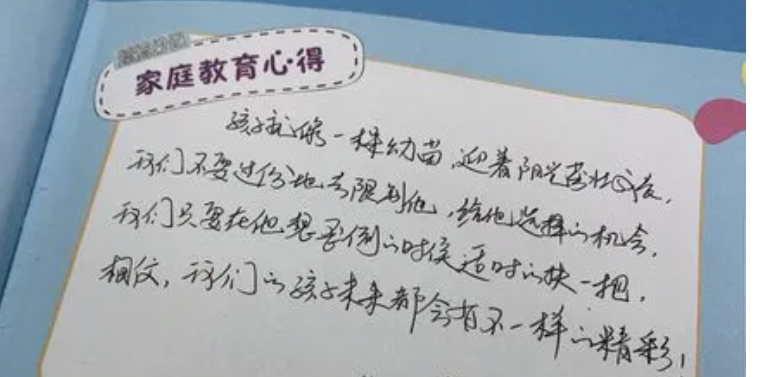 家庭教育心得
孩子就像一棵幼苗，迎着阳光茁壮成长，
我们不要过份地去限制他，给他选择的机会，
我们只要在他想要倒的时候适时的扶一把，
相信，我们的孩子未来都会有不一样的精彩！